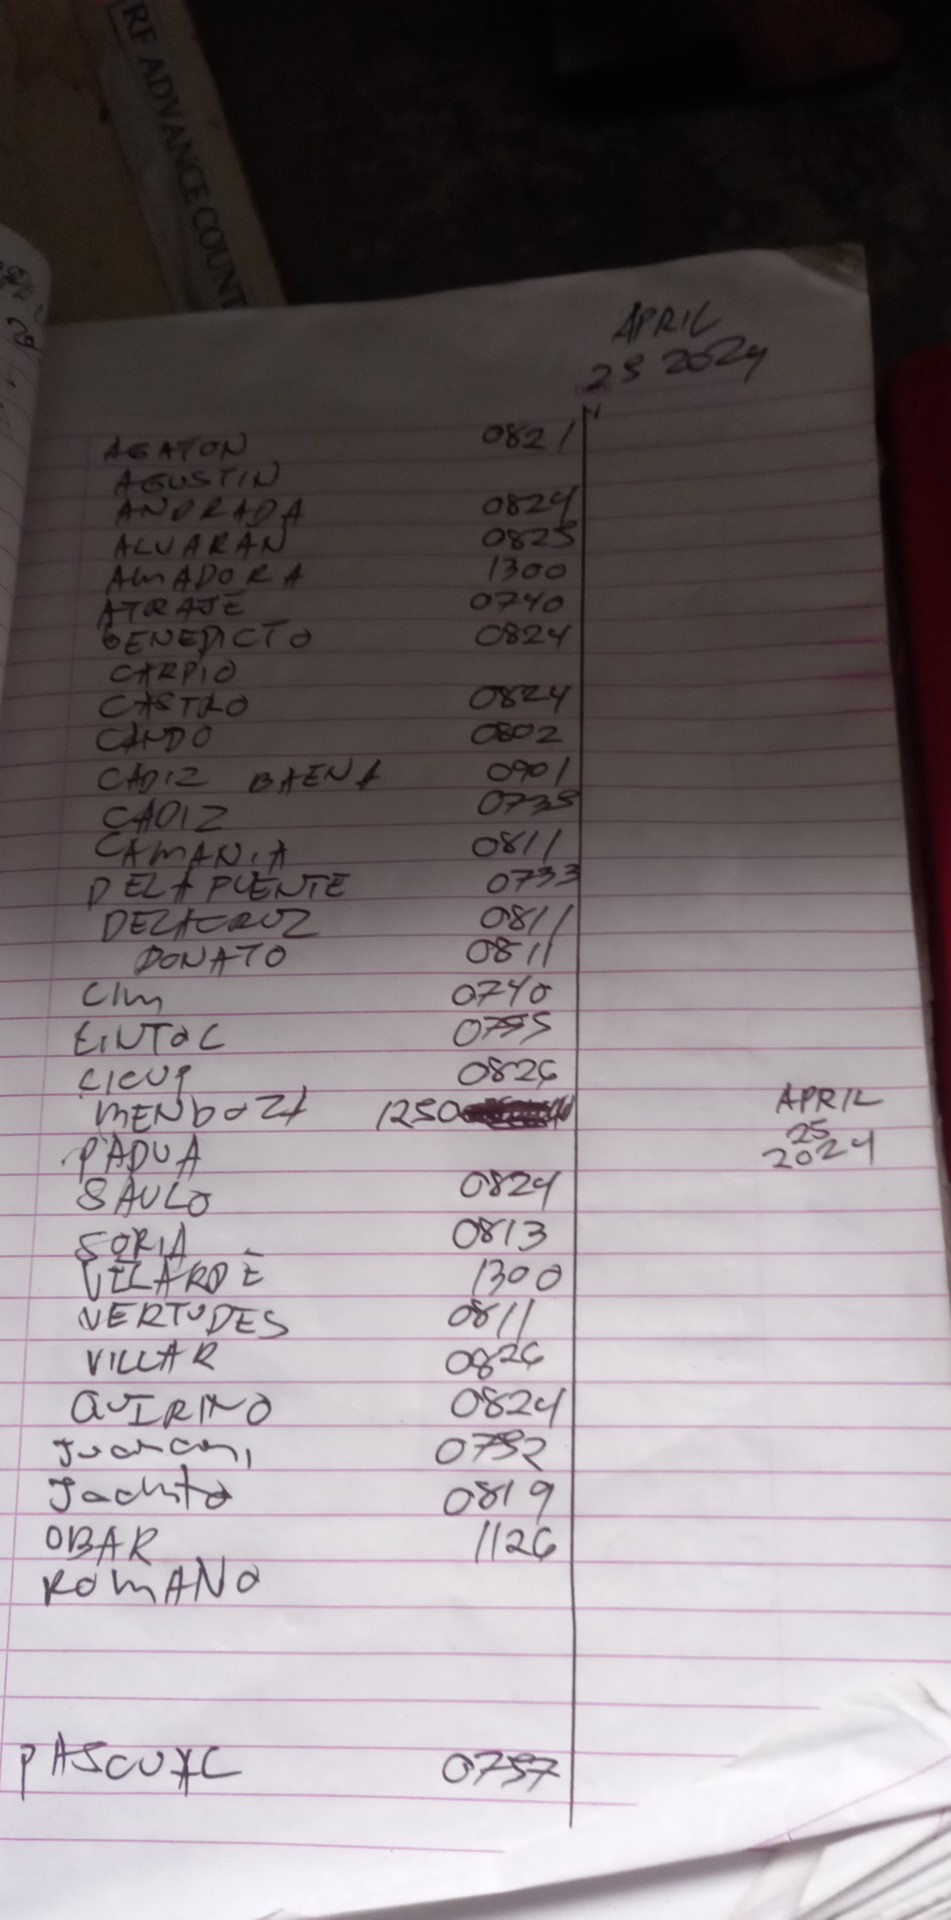 RF ADVANCE COUNT
APRIL
25 2024
AGATON 0821
AGUSTIN
ANDRADA 0824
ALVARAN 0825
AMADORA 1300
ATRAJE 0740
BENEDICTO 0824
CARPIO
CASTRO 0824
CANDO 0802
CADIZ BAENA 0901
CADIZ 0735
CAMANIA 0811
DELA PUENTE 0733
DELACRUZ 0811
DONATO 0811
LIM 0740
LINTOC 0755
LICUP 0826
MENDOZA 1250
APRIL
25
2024
PADUA
SAULO 0824
SORIA 0813
VELARDE 1300
VERTUDES 0811
VILLAR 0826
QUIRINO 0824
0752
Jachito 0819
OBAR 1126
ROMANO
PASCUAL 0757